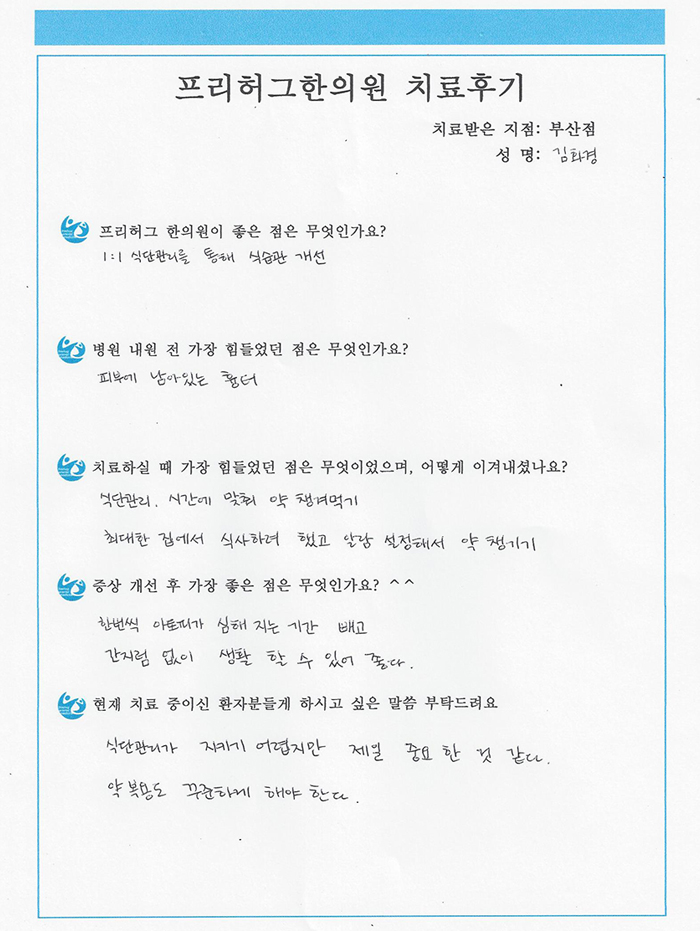 프리허그한의원 치료후기
치료받은 지점: 부산점
성 명: 김화경
프리허그 한의원이 좋은 점은 무엇인가요?
1:1 식단관리를 통해 식습관 개선
병원 내원 전 가장 힘들었던 점은 무엇인가요?
피부에 남아있는 흉터
치료하실 때 가장 힘들었던 점은 무엇이었으며, 어떻게 이겨내셨나요?
식단관리. 시간에 맞춰 약 챙겨먹기
최대한 집에서 식사하려 했고 알람 설정해서 약 챙기기
증상 개선 후 가장 좋은 점은 무엇인가요? ^^
한번씩 아토피가 심해 지는 기간 빼고
간지럼 없이 생활 할 수 있어 좋다.
현재 치료 중이신 환자분들게 하시고 싶은 말씀 부탁드려요
식단관리가 지키기 어렵지만 제일 중요 한 것 같다.
약 복용도 꾸준하게 해야 한다.